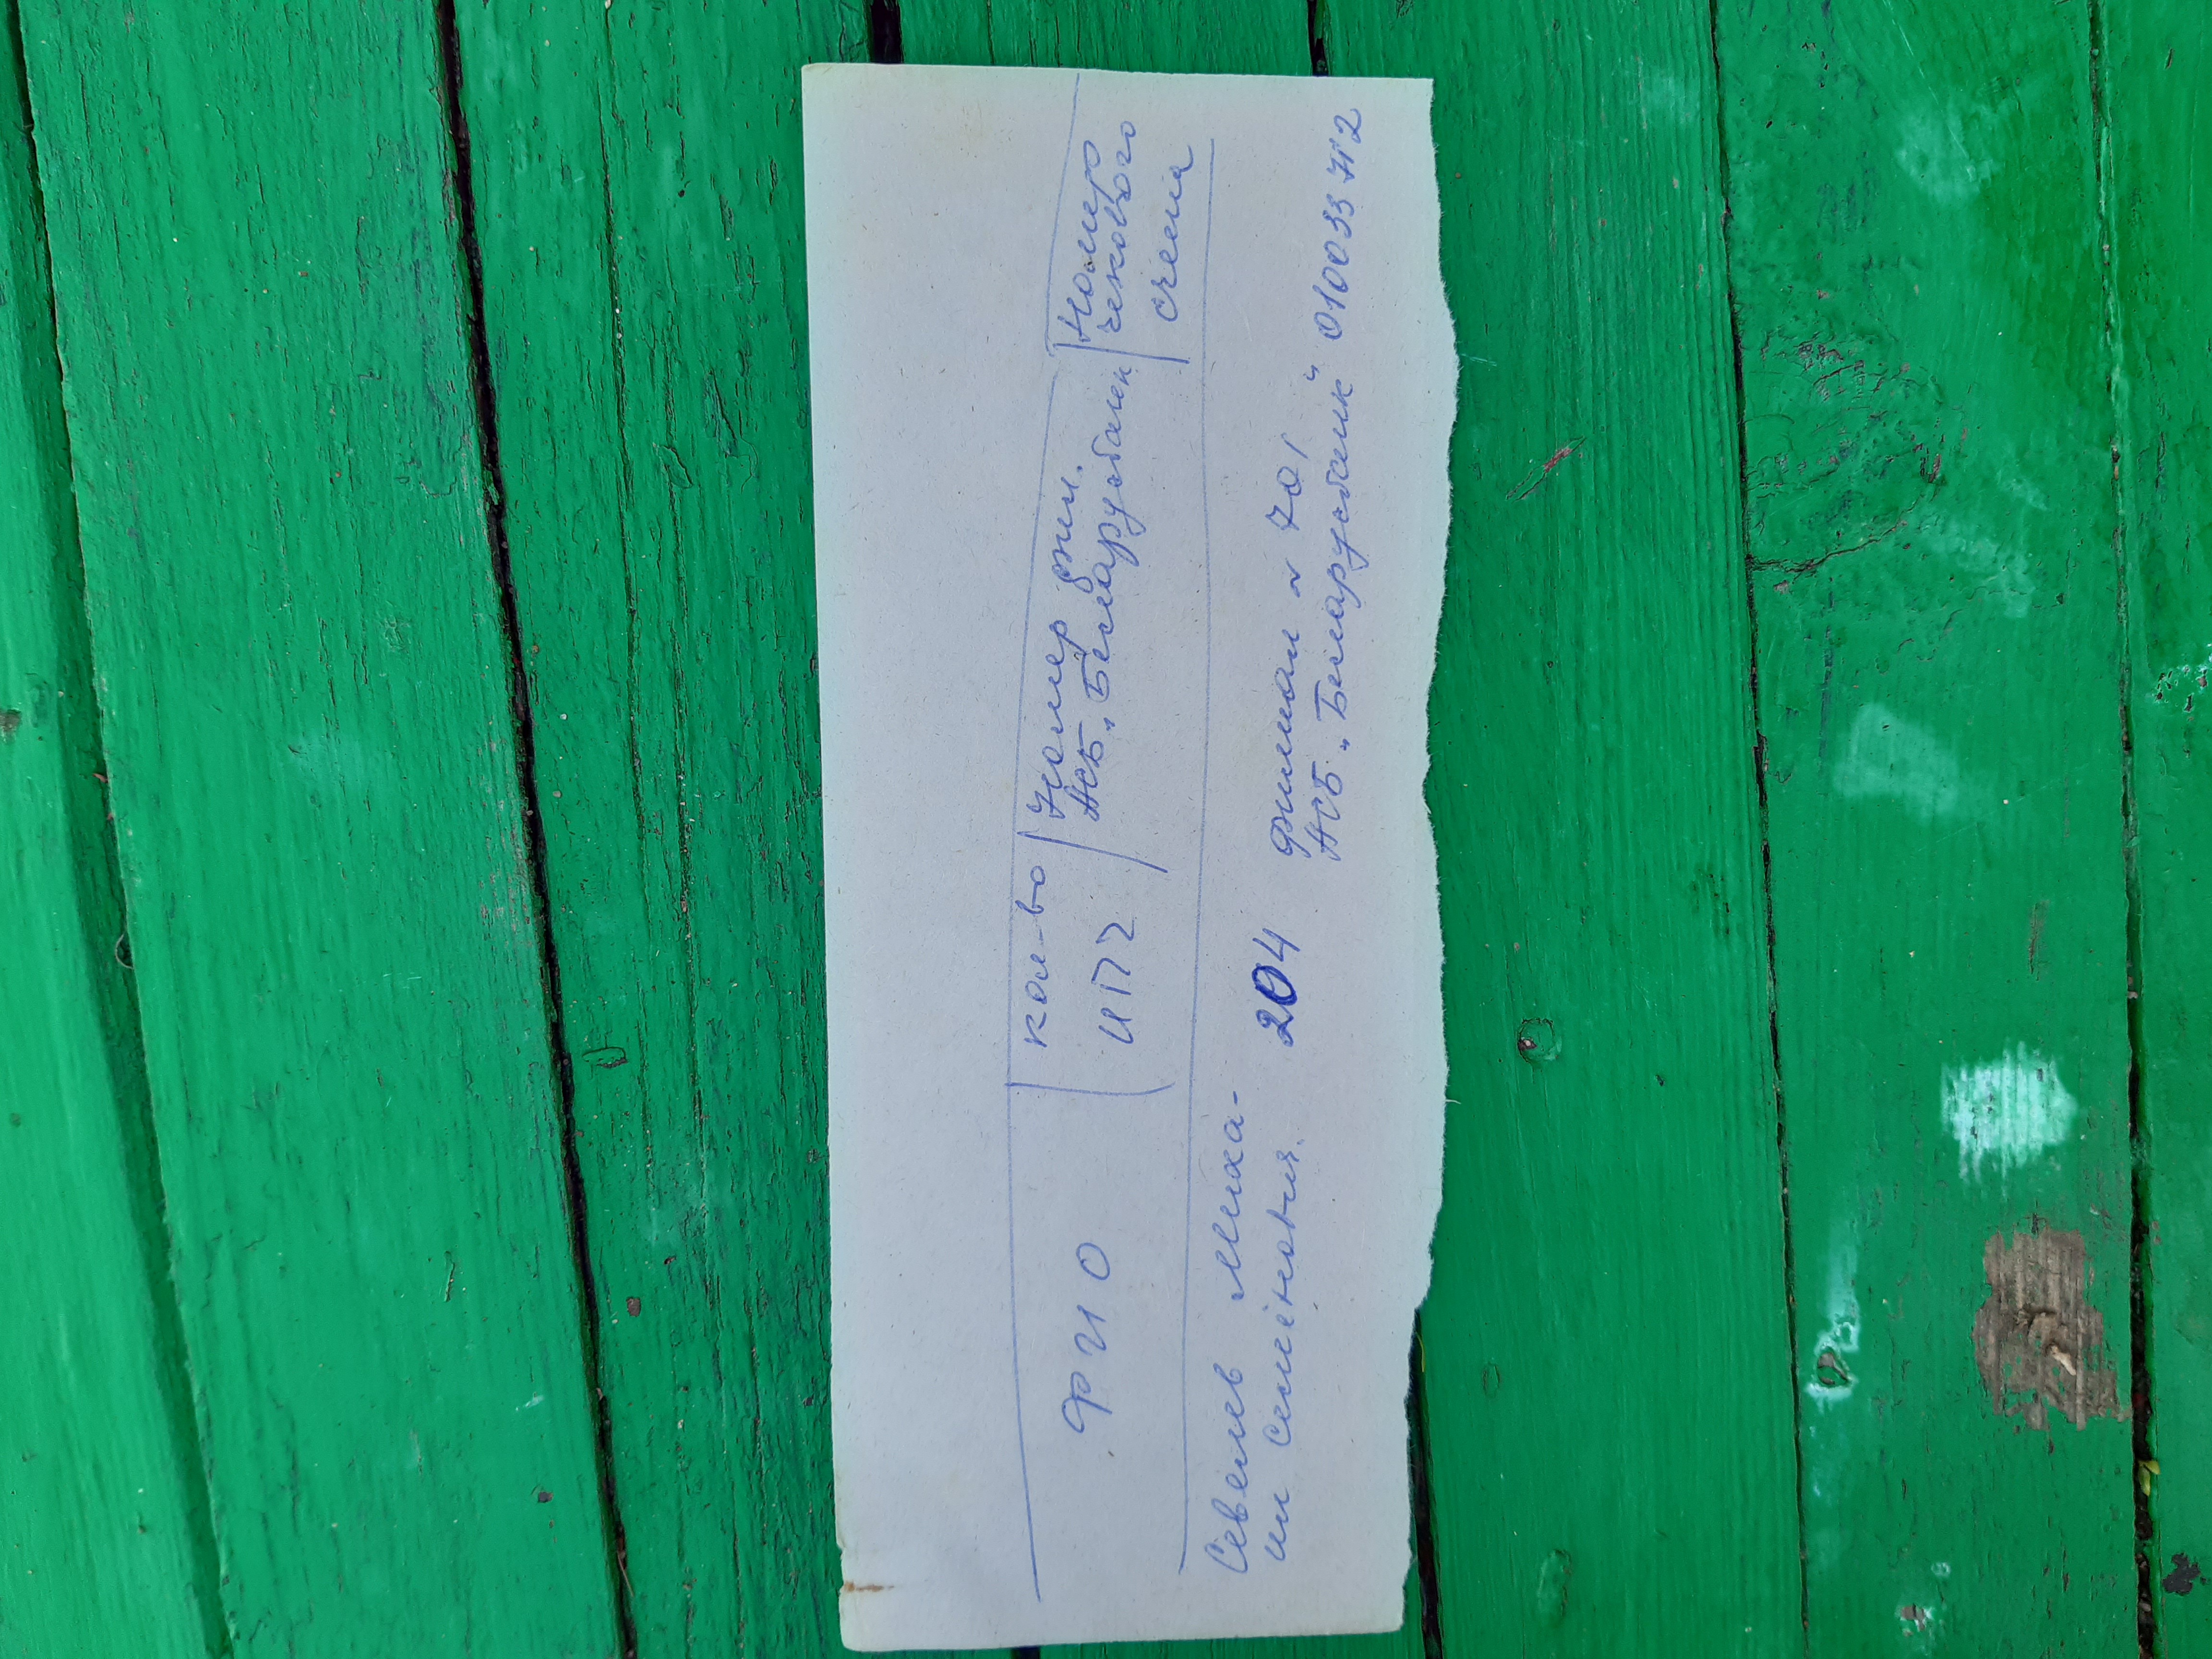 ФИО
кол-во
ИПЧ
Номер фил.
АСБ „Беларусбанк
Номер
чекового
счета
Севелев Миха-
ил Семёнович.
204
филиал N 701
АСБ „Беларусбанк"
010033712